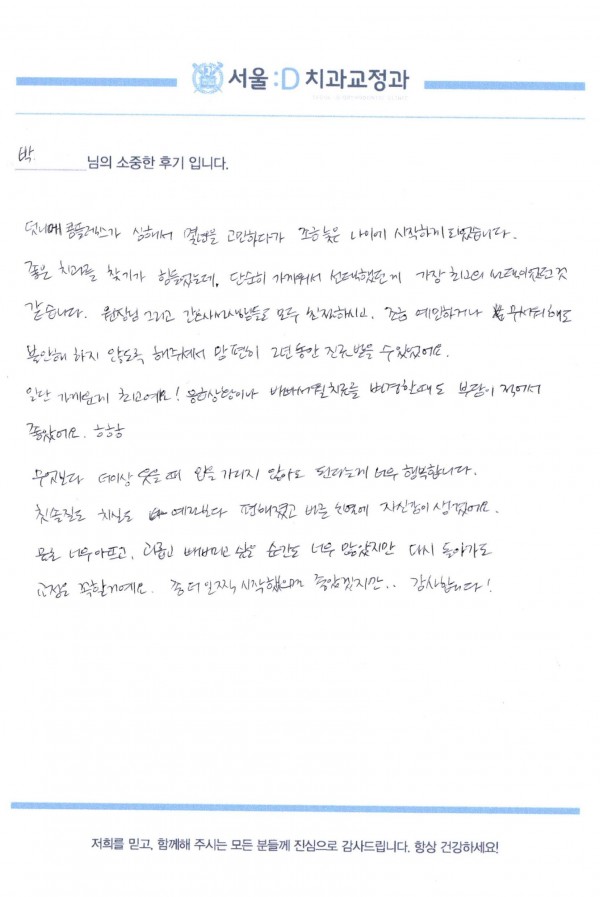 서울:D 치과교정과
박 님의 소중한 후기 입니다.
덧니에 콤플렉스가 심해서 몇년을 고민하다가 조금 늦은 나이에 시작하게 되었습니다.
좋은 치과를 찾기가 힘들었는데, 단순히 가까워서 선택했던게 가장 최고의 선택이었던 것
같습니다. 원장님 그리고 간호사선생님들도 모두 친절하시고, 조금 예민하거나 무서워해도
불안해 하지 않도록 해주셔서 맘 편히 2년 동안 진료 받을 수 있었어요.
일단 가까운게 최고예요! 응급상황이나 바빠서 치료를 변경할때도 부담이 적어서
좋았어요. ㅎㅎㅎ
무엇보다 더이상 웃을 때 입을 가리지 않아도 된다는게 너무 행복합니다.
칫솔질도 치실도 예전보다 편해졌고 바른 치열에 자신감이 생겼어요.
물론 너무 아프고, 괴롭고 빼버리고 싶은 순간도 너무 많았지만 다시 돌아가도
교정은 꼭 할거예요. 좀 더 일찍 시작했으면 좋았겠지만.. 감사합니다!
저희를 믿고, 함께해 주시는 모든 분들께 진심으로 감사드립니다. 항상 건강하세요!